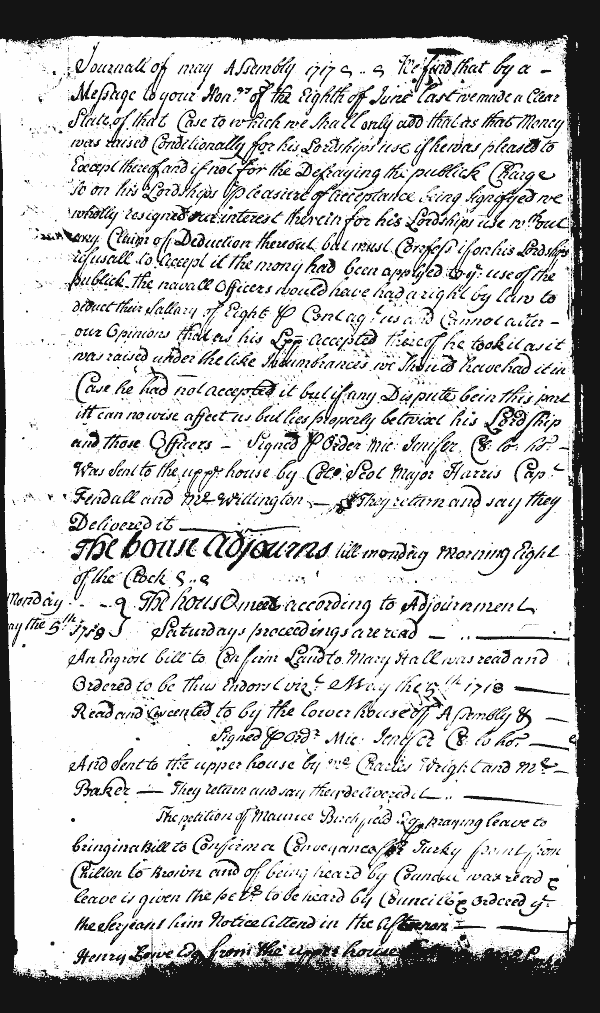 Journall of may Assembly 1717 We find that by a -
Message to your Hon.rs of the Eighth of June last we made a Clear
State of that Case to which we shall only add that as that Money
was raised Conditionally for his Lordships use if he was pleased to
Except thereof and if not for the Defraying the publick Charge
So on his Lordships Pleasure of acceptance being signifyed we
wholly resigned our interest therein for his Lordships use w.thout
any Claim of Deduction thereout but must Confess if on his Lordships
refusall to accept it the mony had been applyed to y.e use of the
publick the navall Officers would have had a right by law to
deduct their Sallary of Eight P Cent ag.t us and Cannot alter -
our Opinions that as his Lpp accepted thereof he took it as it
was raised under the like Incumbrances we should have had it in
Case he had not accepted it but if any Dispute be in this part
itt can no wise affect us but lies properly betwixt his Lordship
and those Officers - Signed P Order Mic: Jenifer Cl: lo: ho: -
Was Sent to the upp.r house by Coll.o Scot Major Harris Cap.t
Fendall and M.r Willington - They return and say they
Delivered it
The house Adjourns till monday morning Eight
of the Clock
Monday
may the 5.th 1718 } The house meet according to Adjournment
Saturdays proceedings are read -
An Engrost bill to Confirm Land to Mary Hall was read and
Ordered to be thus Endorst viz.t May the 5.th 1718
Read and Assented to by the lower house of Assembly &
Signed P Ord.r Mic: Jenifer Cl: lo ho:
And Sent to the upper house by m.r Charles Wright and M.r -
Baker - They return and say they delivered it
The petition of Maurice Birchfield Esq. praying leave to
bring in a Bill to Confirm a Conveyance of Turky point from
Chillon to Brown and of being heard by Councill was read &
leave is given the pet.r to be heard by Councill & Ordered y.t
the Serjeant him Notice Attend in the afternoon
Henry Lowe Esq from the upper house